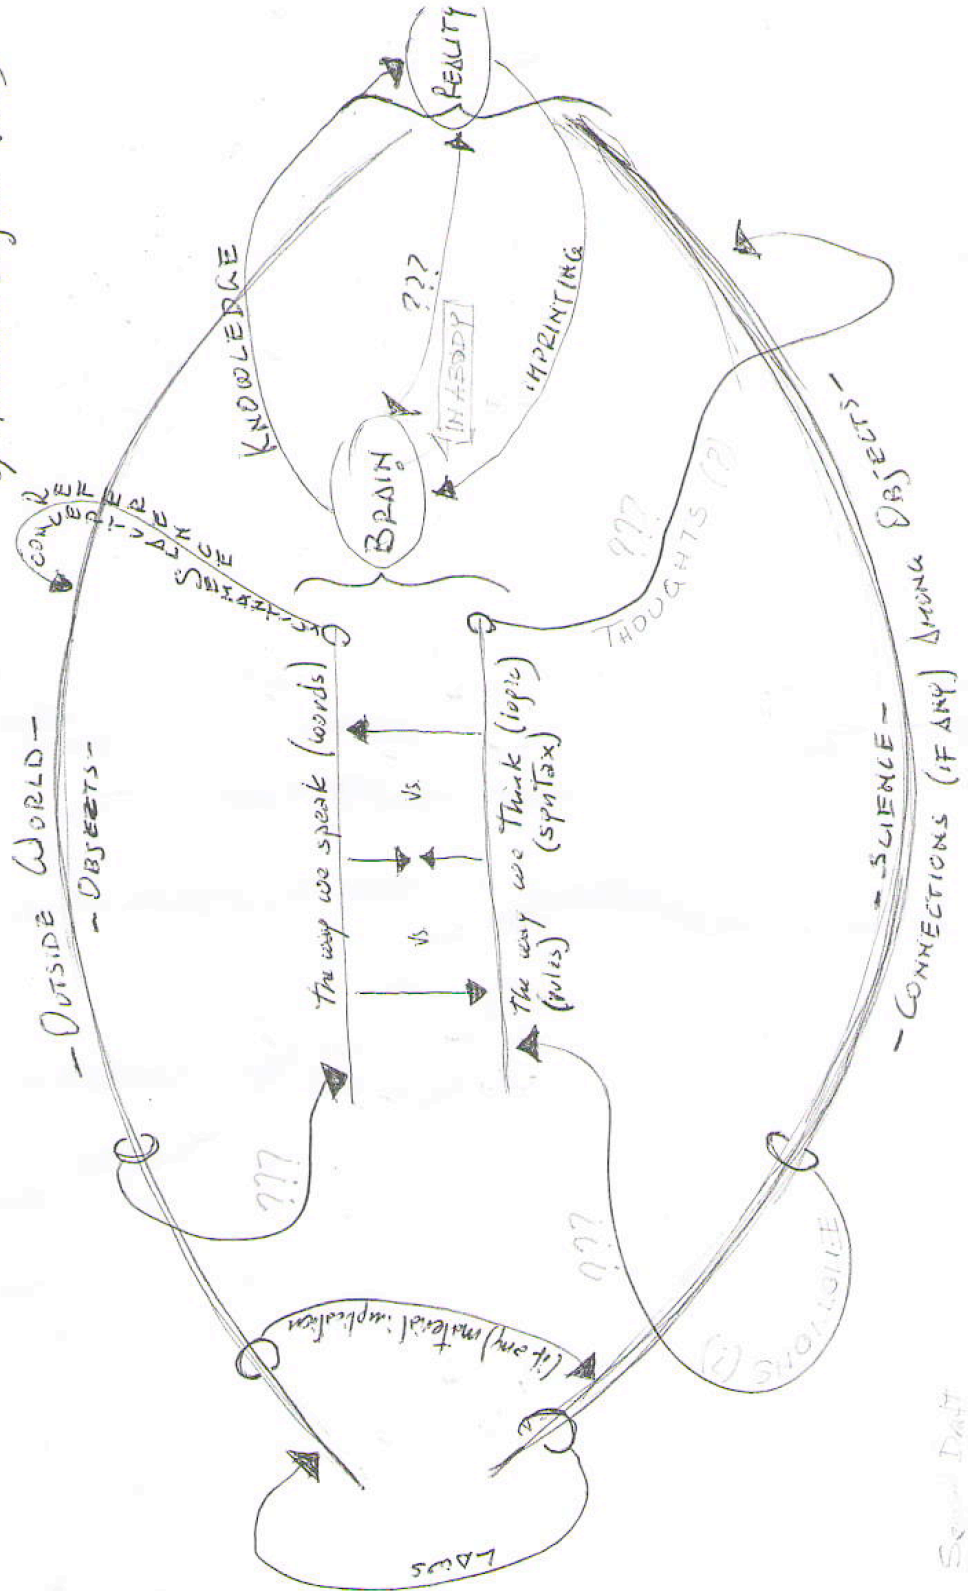 - OUTSIDE WORLD -
- OBJECTS -
CONCEPTUAL
REFERENCE
SEMANTICS
KNOWLEDGE
REALITY
???
IN A BODY
IMPRINTING
BRAIN
The way we speak (words)
vs.
vs.
The way we think (logic)
(rules)
(syntax)
???
THOUGHTS (?)
???
???
EMOTIONS
(?)
(if any) material implication
LAWS
- SCIENCE -
- CONNECTIONS (IF ANY) AMONG OBJECTS -
Draft